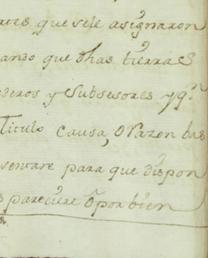 que sele asignaron
ando que dhas tierras
ederos y subsesores y qe.
Titulo causa, o razon bas
sentare para que dispon
s pareciere o por bien